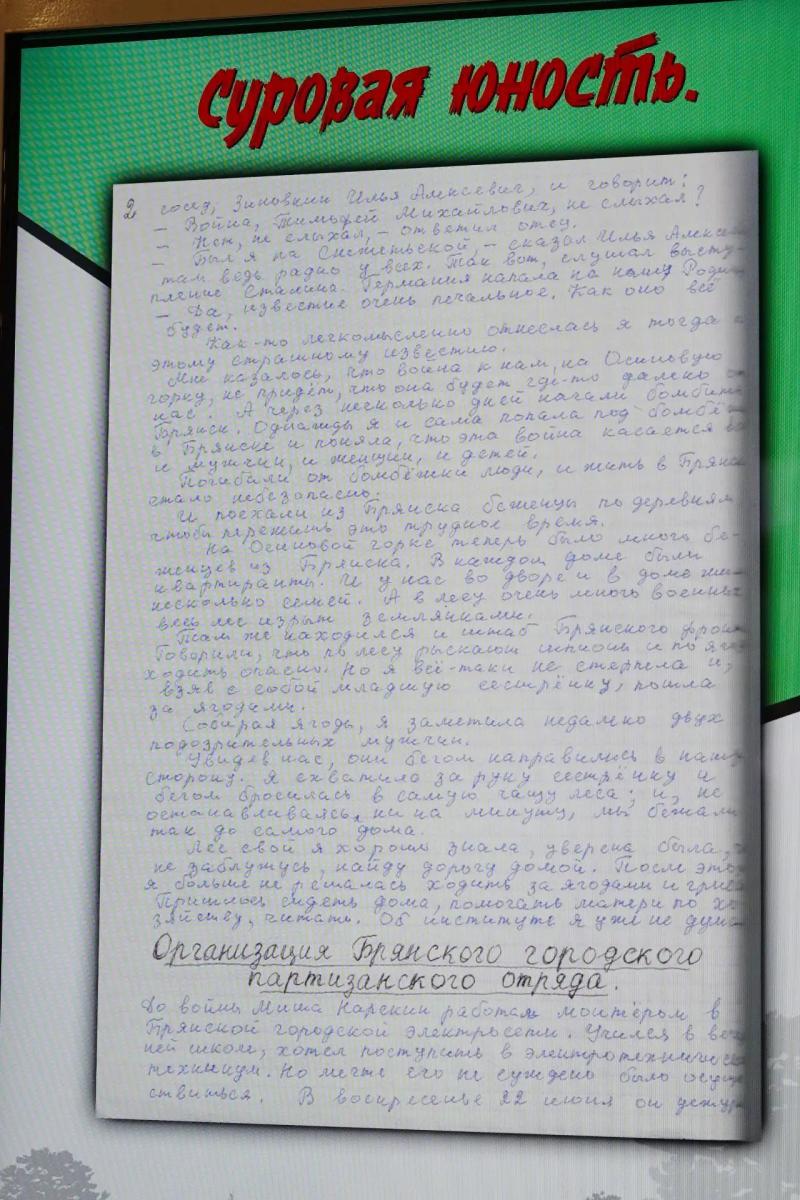 Суровая юность.
2 сосед, Зиновкин Илья Алексеевич, и говорит:
– Война, Тимофей Михайлович, не слыхал?
– Нет, не слыхал, – ответил отец.
– Был я на Снежетьской, – сказал Илья Алексе
там ведь радио у всех. Так вот, слушал высту-
пление Сталина. Германия напала на нашу Роди
– Да, известие очень печальное. Как оно всё
будет.
Как-то легкомысленно отнеслась я тогда к
этому страшному известию.
Мне казалось, что война к нам, на Осиновую
горку, не придёт, что она будет где-то далеко от
нас. А через несколько дней начали бомбить
Брянск. Однажды я и сама попала под бомбёж
в Брянске и поняла, что эта война касается
и мужчин, и женщин, и детей.
Погибали от бомбёжки люди, и жить в Брянс
стало небезопасно.
И поехали из Брянска беженцы по деревням
чтобы пережить это трудное время.
На Осиновой горке теперь было много бе-
женцев из Брянска. В каждом доме были
квартиранты. И у нас во дворе и в доме жи-
несколько семей. А в лесу очень много военных
весь лес изрыт землянками.
Там же находился и штаб Брянского фрон
Говорили, что по лесу рыскают шпионы и по яго
ходить опасно. Но я всё-таки не стерпела и,
взяв с собой младшую сестрёнку, пошла
за ягодами.
Собирая ягоды, я заметила недалеко двух
подозрительных мужчин.
Увидев нас, они бегом направились в нашу
сторону. Я схватила за руку сестрёнку и
бегом бросилась в самую чащу леса; и, не
останавливаясь ни на минуту, мы бежали
так до самого дома.
Лес свой я хорошо знала, уверена была,
не заблужусь, найду дорогу домой. После это
я больше не решалась ходить за ягодами и гриба
Пришлось сидеть дома, помогать матери по хо-
зяйству, читать. Об институте я уже не дума
Организация Брянского городского
партизанского отряда.
До войны Миша Нарекин работал монтёром в
Брянской городской электросети. Учился в веч
ней школе, хотел поступить в электротехническ
техникум. Но мечте его не суждено было осущ
ствиться. В воскресенье 22 июня он дежур